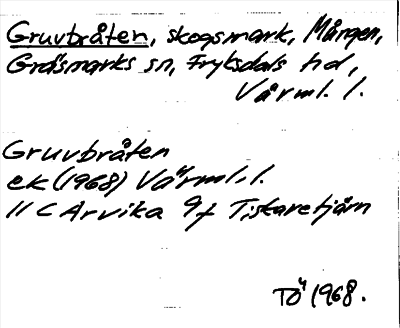 Gruvbråten, skogsmark, Mången,
Gräsmarks sn, Fryksdals hd,
Värml. l.
Gruvbråten
ek (1968) Värml. l.
11 C Arvika 9f Tiskaretjärn
TÖ 1968.